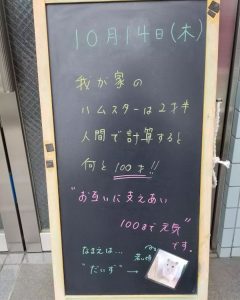 10月14日(木)
我が家の
ハムスターは2才半
人間で計算すると
何と100才!!
"お互いに支えあい
100まで元気"
です。
なまえは…
"だいず"→